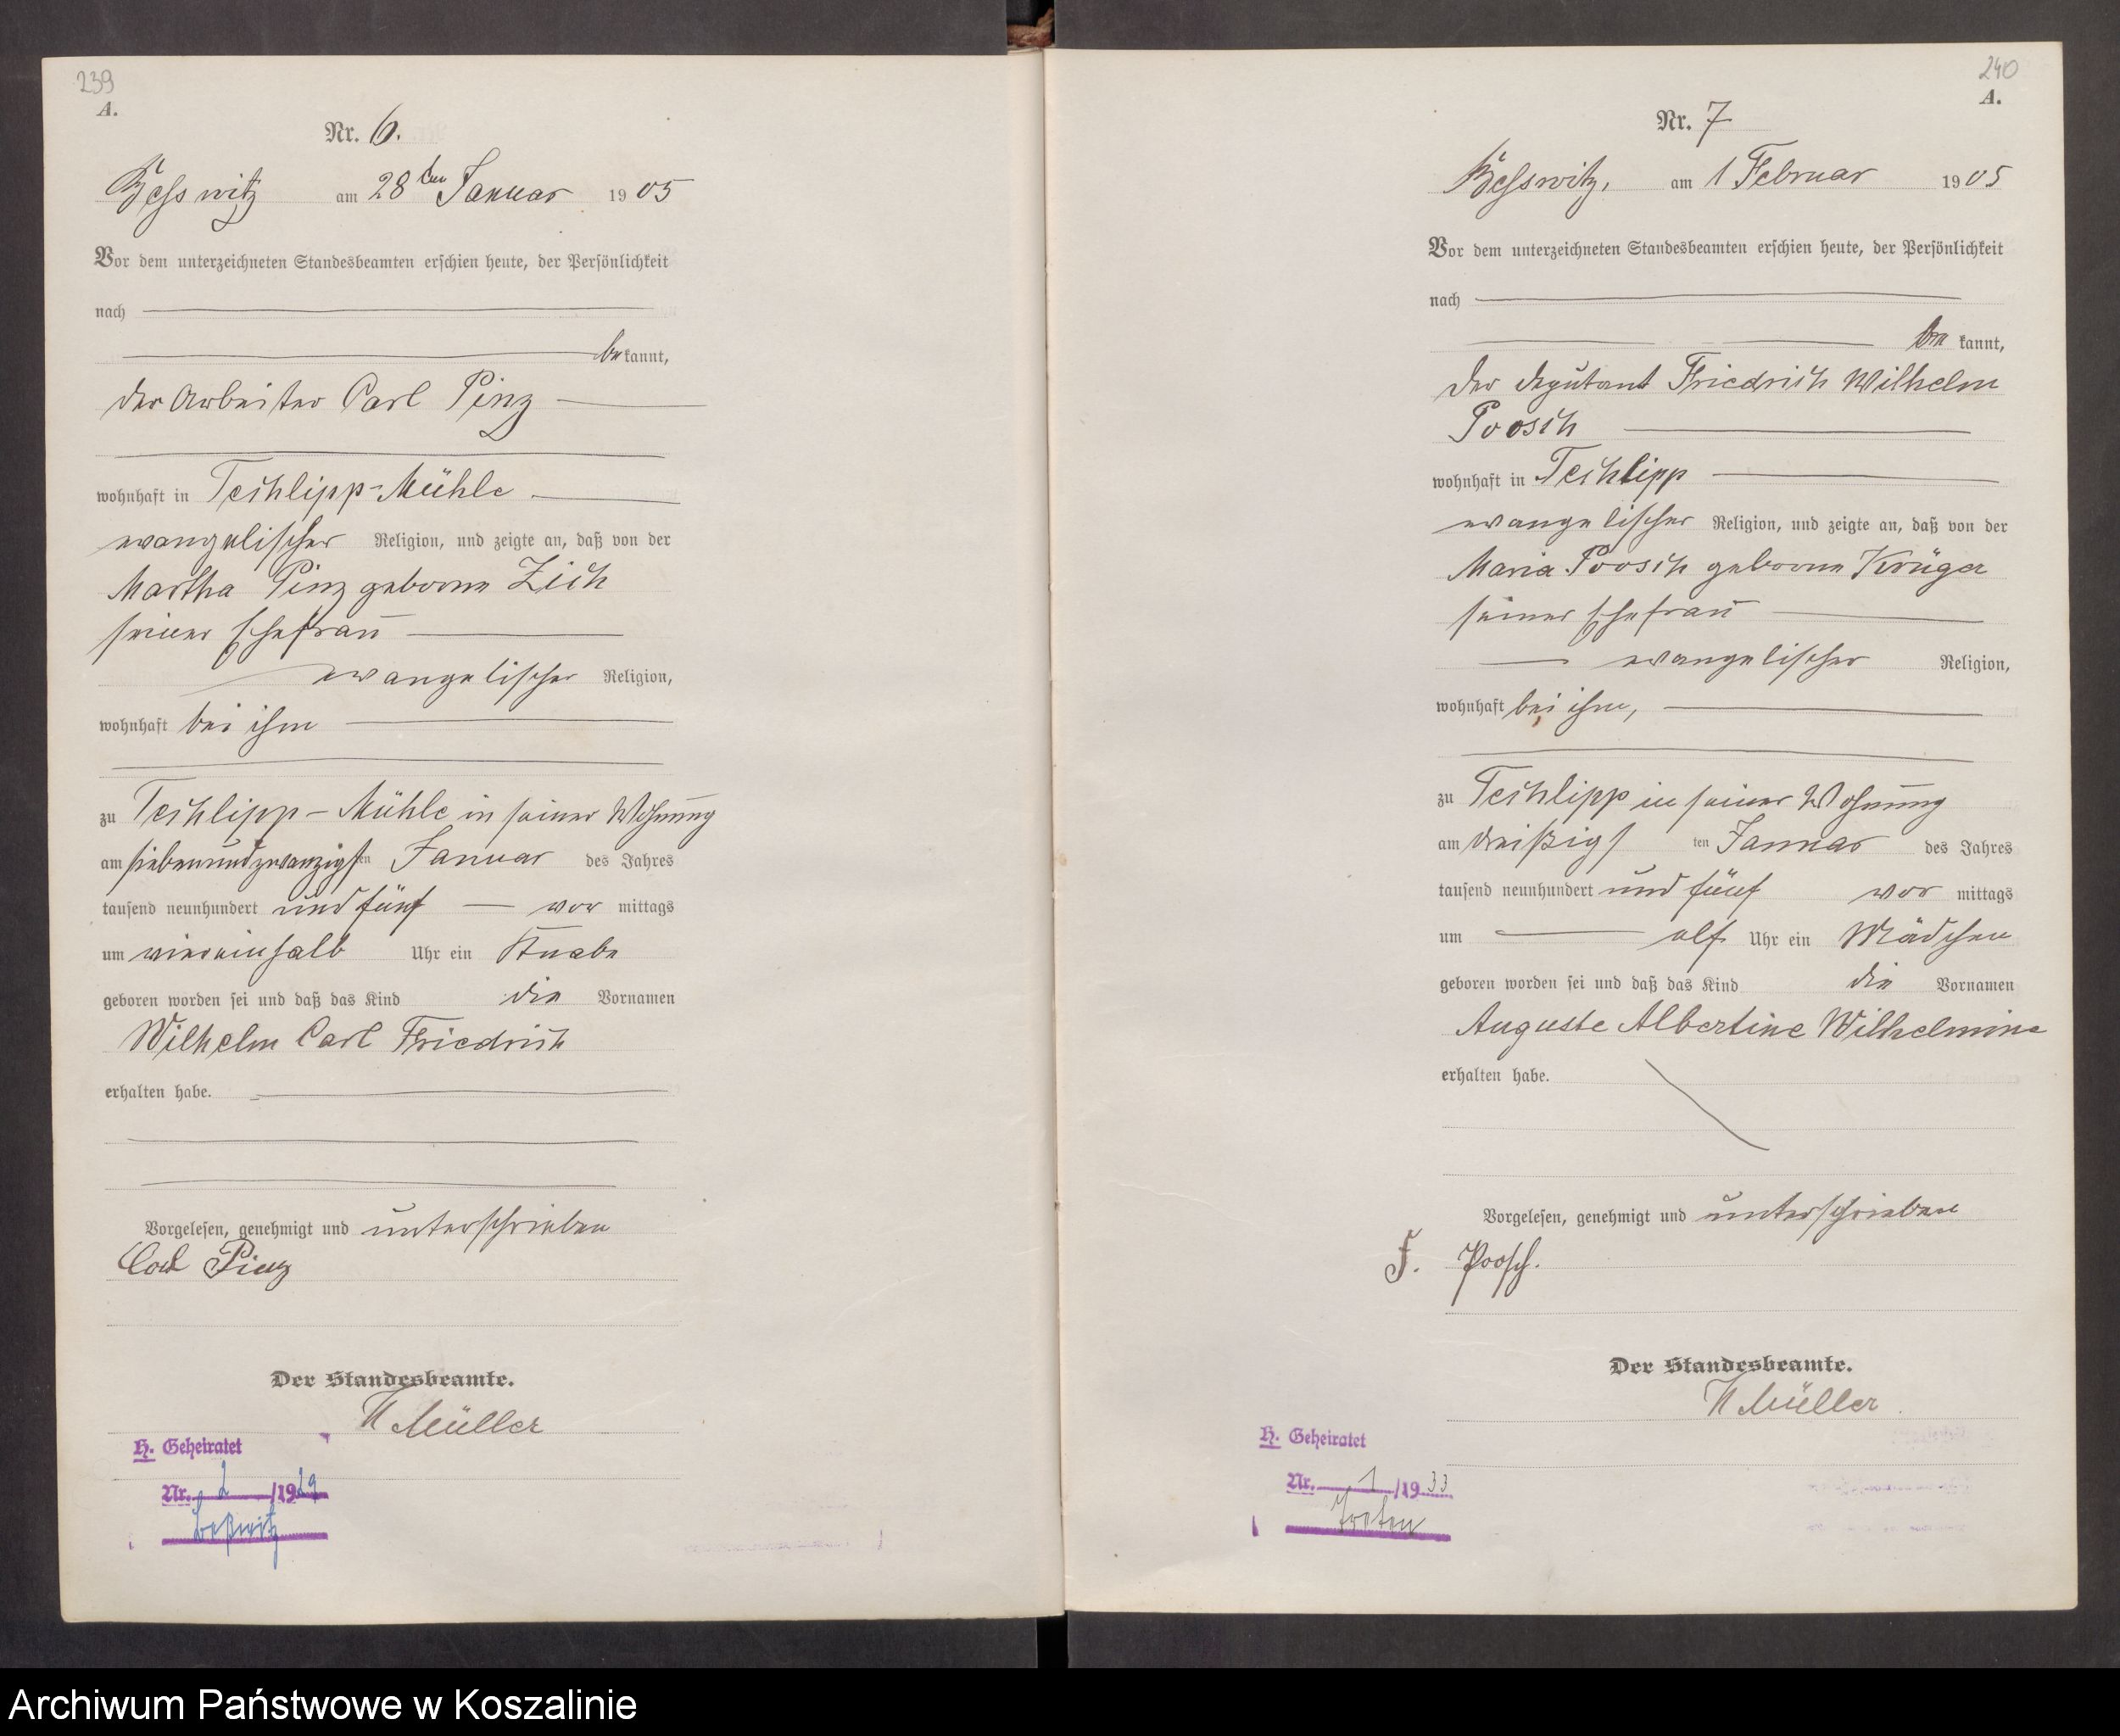 239
A.
Nr. 6.
Besswitz am 28ten Januar 1905
Vor dem unterzeichneten Standesbeamten erschien heute, der Persönlichkeit
nach
bekannt,
der Arbeiter Carl Pinz
wohnhaft in Techlipp-Mühle
evangelischer Religion, und zeigte an, daß von der
Martha Pinz geborne Zich
seiner Ehefrau
evangelischer Religion,
wohnhaft bei ihm
zu Techlipp-Mühle in seiner Wohnung
am siebenundzwanzigsten Januar des Jahres
tausend neunhundert und fünf vor mittags
um viereinhalb Uhr ein Knabe
geboren worden sei und daß das Kind die Vornamen
Wilhelm Carl Friedrich
erhalten habe.
Vorgelesen, genehmigt und unterschrieben
Carl Pinz
Der Standesbeamte.
Müller
H. Geheiratet
Nr. 2 /1929
Beßwitz
240
A.
Nr. 7
Besswitz, am 1 Februar 1905
Vor dem unterzeichneten Standesbeamten erschien heute, der Persönlichkeit
nach
bekannt,
der Deputant Friedrich Wilhelm
Poosch
wohnhaft in Techlipp
evangelischer Religion, und zeigte an, daß von der
Maria Poosch geborne Krüger
seiner Ehefrau
evangelischer Religion,
wohnhaft bei ihm,
zu Techlipp in seiner Wohnung
am dreißigsten Januar des Jahres
tausend neunhundert und fünf vor mittags
um elf Uhr ein Mädchen
geboren worden sei und daß das Kind die Vornamen
Auguste Albertine Wilhelmine
erhalten habe.
Vorgelesen, genehmigt und unterschrieben
F. Poosch.
Der Standesbeamte.
Müller
H. Geheiratet
Nr. 1 /1933
Archiwum Państwowe w Koszalinie